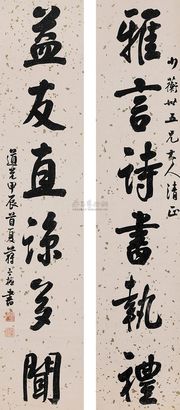 小蘅世五兄大人清正
雅言詩書執禮
益友直諒多聞
道光甲辰首夏蔣立鏞書